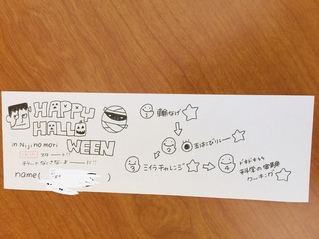 HAPPY
HALLO
WEEN
in Nijinomori
name( )
1 輪なげ
2 玉はこびリレー
3 ミイラチャレンジ
4 ドキドキ
科学の実験
クッキング